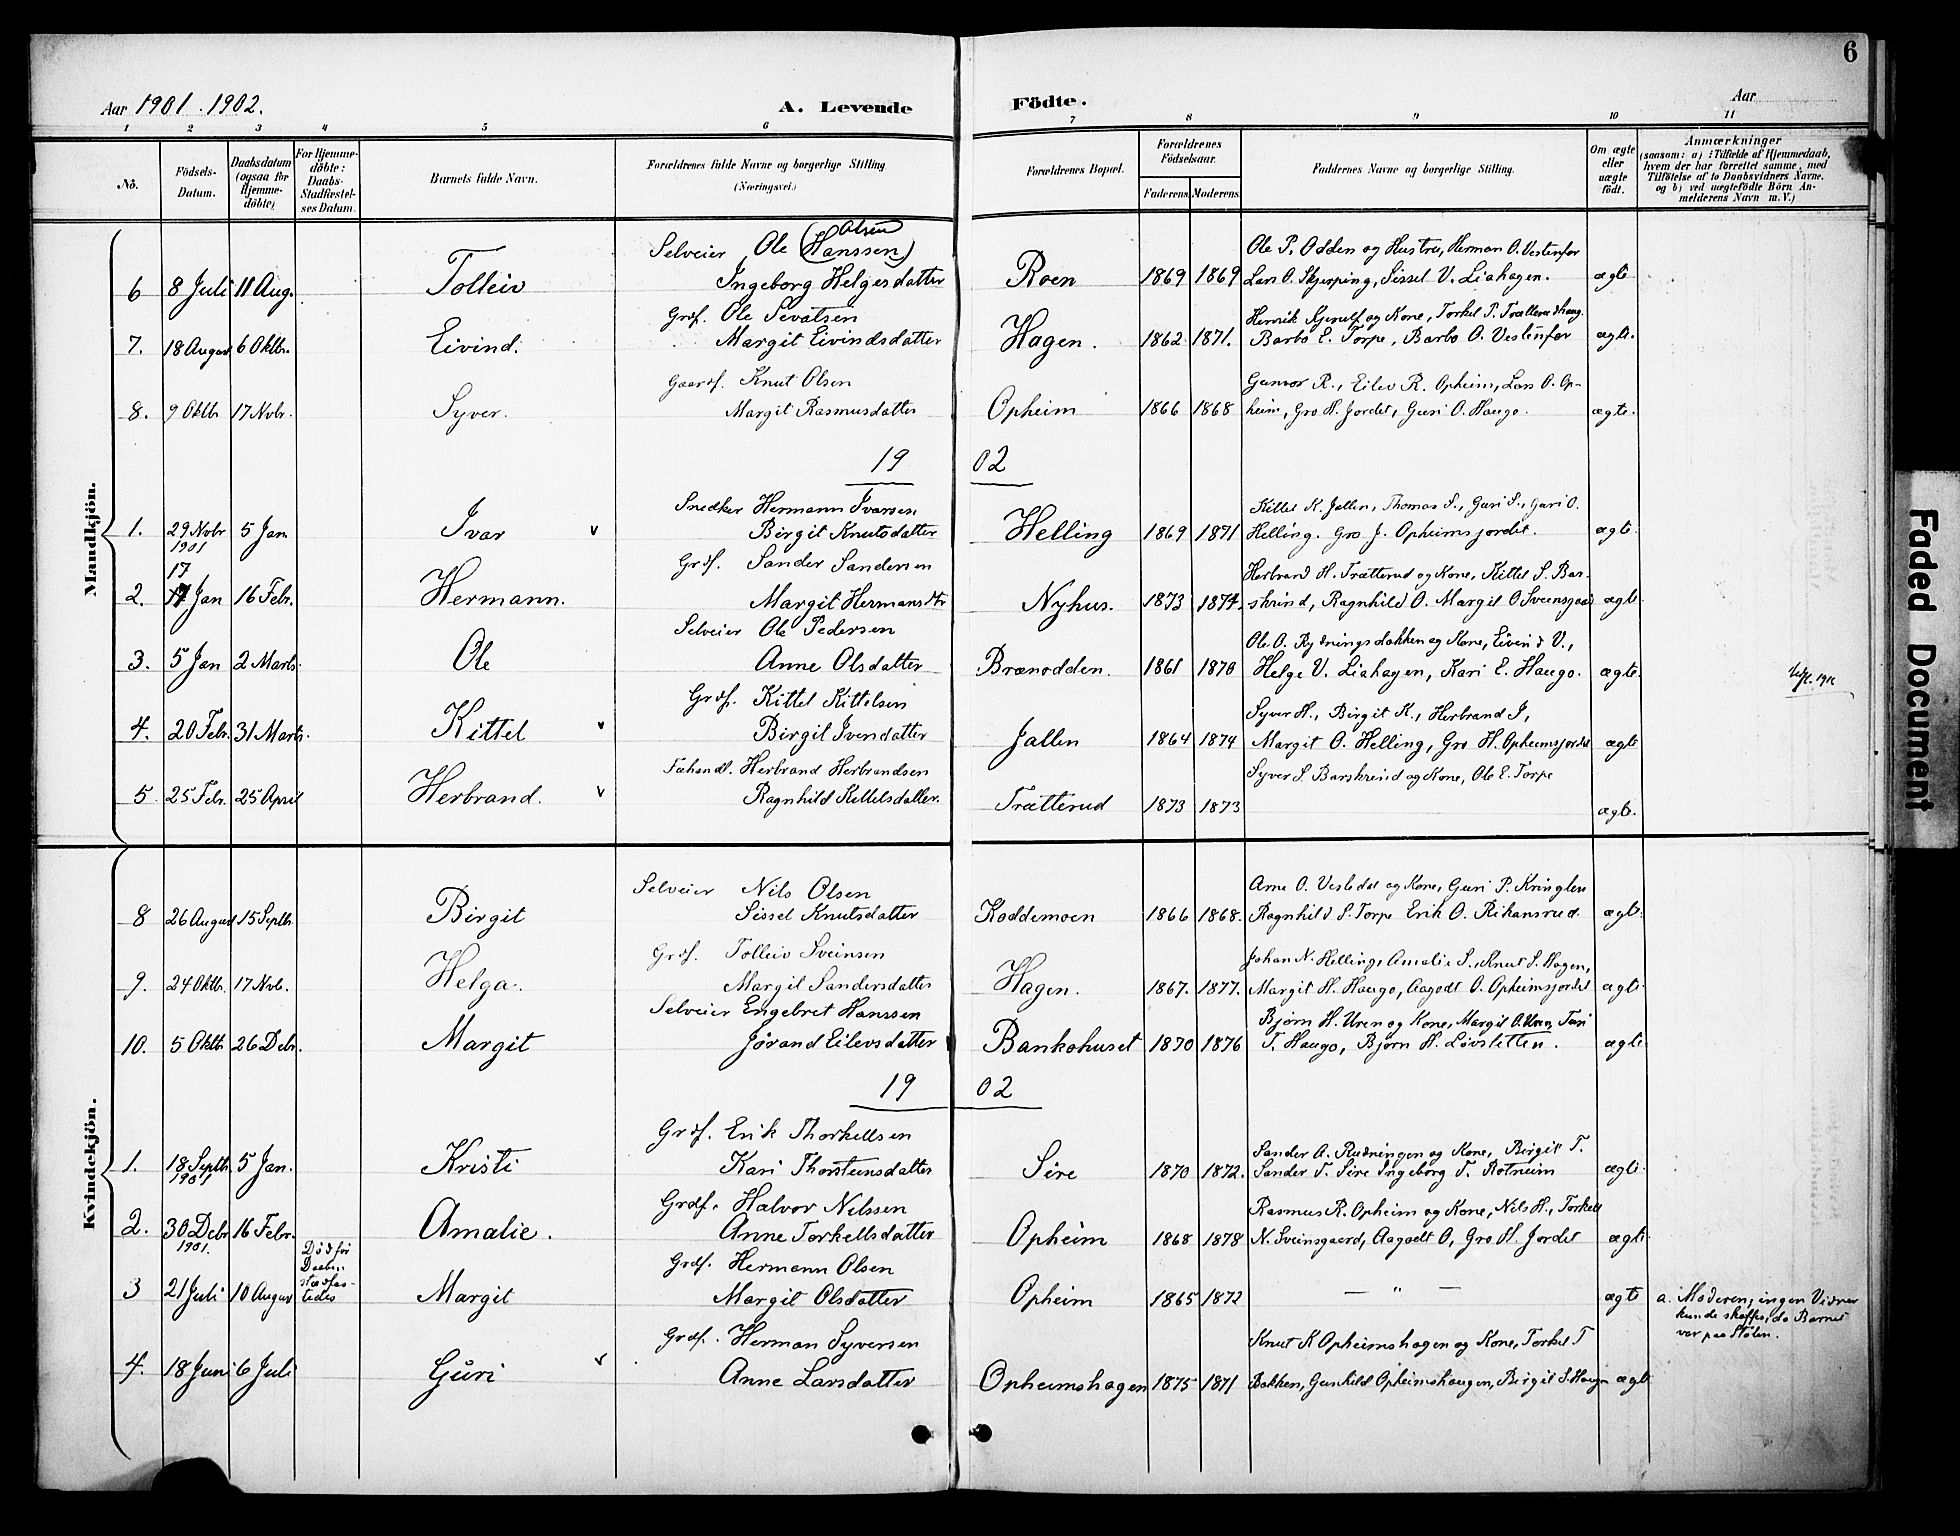 6
Aar 1901. 1902. A. Levende Födte. Aar
1 2 3 4 5 6 7 8 9 10 11
No. Födsels-Datum. Daabsdatum (ogsaa for Hjemmedöbte) For Hjemmedöbte: Daabs-Stadfæstelses Datum. Barnets fulde Navn. Forældrenes fulde Navne og borgerlige Stilling (Næringsvei.) Forældrenes Bopæl. Forældrenes Födselsaar. Faderens Moderens Faddernes Navne og borgerlige Stilling. Om ægte eller uægte födt. Anmærkninger (saasom: a) i Tilfælde af Hjemmedaab, hvem der har forrettet samme, med Tilföielse af to Daabsvidners Navne, og b) ved uægtefödte Börn Anmelderens Navn m. V.)
Mandkjön.
Olsen
Selveier Ole (Hanssen) Ole P. Odden og Hustru, Herman O. Vestenfor
6 8 Juli 11 Aug. Tolleiv Ingeborg Helgesdatter Roen 1869 1869 Lars O. Skjerping, Sissel V. Liahagen. ægte
Grdf. Ole Sevatsen Henrik Gjenulf og Kone, Torkel P. Trætterudhaug.
7. 18 August 6 Oktbr. Eivind. Margit Eivindsdatter Hagen. 1862 1871. Barbo E. Torpe, Barbo O. Vestenfor ægte.
Gaardf. Knut Olsen Gunvor R., Eilev R. Opheim, Lars O. Op-
8. 9 Oktbr 17 Novbr. Syver. Margit Rasmusdatter Opheim 1866 1868 heim, Gro H. Jordet, Guri O. Haugo. ægte.
19 02
Snedker Hermann Ivarsen Kittel K. Jallen, Thomas S., Guri S., Guri O.
1. 29 Novbr 1901 5 Jan. Ivar v Birgit Knutsdatter Helling 1869 1871 Helling. Gro J. Opheimsjordet. ægte
17 Grdf. Sander Sandersen Herbrand H. Trætterud og Kone, Kittel S. Bar-
2. 17 Jan 16 Febr. Hermann. Margit Hermansdtr Nyhus. 1873 1874. skrind, Ragnhild O. Margit O Sveinsgaard ægte
Selveier Ole Pedersen Ole O. Rydningsdokken og Kone, Eivind V.,
3. 5 Jan 2 Marts. Ole Anne Olsdatter Brænodden. 1861 1870 Helge V. Liahagen, Kari E. Haugo. ægte.
Grdf. Kittel Kittelsen Syver H., Birgit K., Herbrand I,
4. 20 Febr. 31 Marts. Kittel v Birgit Iversdatter Jallen 1864 1874 Margit O. Helling, Gro H. Opheimsjordet ægte
Fæhandl. Herbrand Herbrandsen Syver S. Barskrind og Kone, Ole E. Torpe
5 25 Febr. 25 April Herbrand. v Ragnhild Kittelsdatter. Trætterud 1873 1873 ægte.
Kvindekjön.
Selveier Nils Olsen Arne O. Vesledal og Kone, Guri P. Kringlen
8 26 August 15 Septbr. Birgit Sissel Knutsdatter Koddemoen 1866 1868. Ragnhild S. Torpe Erik O. Rikansrud. ægte.
Grdf. Tolleiv Sveinsen Johan N. Helling, Amalie S., Knut S. Hagen,
9. 24 Oktbr. 17 Novb. Helga. Margit Sandersdatter Hagen. 1867. 1877. Margit H. Haugo, Aagodt O. Opheimsjordet ægte
Selveier Engebret Hanssen Bjørn H. Uren og Kone, Margit O. Uren, Turi
10. 5 Oktbr 26 Debr. Margit Jørand Eilevsdatter Bankohuset 1870 1876 T. Haugo, Bjørn H. Løvsletten. ægte
19 02
Grdf. Erik Thorkellsen Sander A. Rudningen og Kone, Birgit T.
1. 18 Septbr. 1901 5 Jan. Kristi Kari Thorsteinsdatter Sire 1870 1872. Sander T. Sire Ingeborg T. Rotneim ægte.
Grdf. Halvor Nilssen Rasmus R. Opheim og Kone, Nils H., Torkell
2. 30 Debr 1901. 16 Febr. Amalie. Anne Torkellsdatter Opheim 1868 1878 N. Sveinsgaard, Aagodt O, Gro H. Jordet ægte
Død før Daaben stadfæstedes Grdf. Hermann Olsen
3 21 Juli 10 August Margit Margit Olsdatter Opheim 1865 1872 — " — ægte a. Moderen, ingen Vidner
kunde skaffes, da Barnet
var paa Stølen.
Grdf. Herman Syversen Knut K Opheimshagen og Kone, Torkel T
4. 18 Juni 6 Juli Guri v Anne Larsdatter Opheimshagen 1875 1871 Bakken, Gunhild Opheimshaugen, Birgit S. Haugo ægte
Faded Document